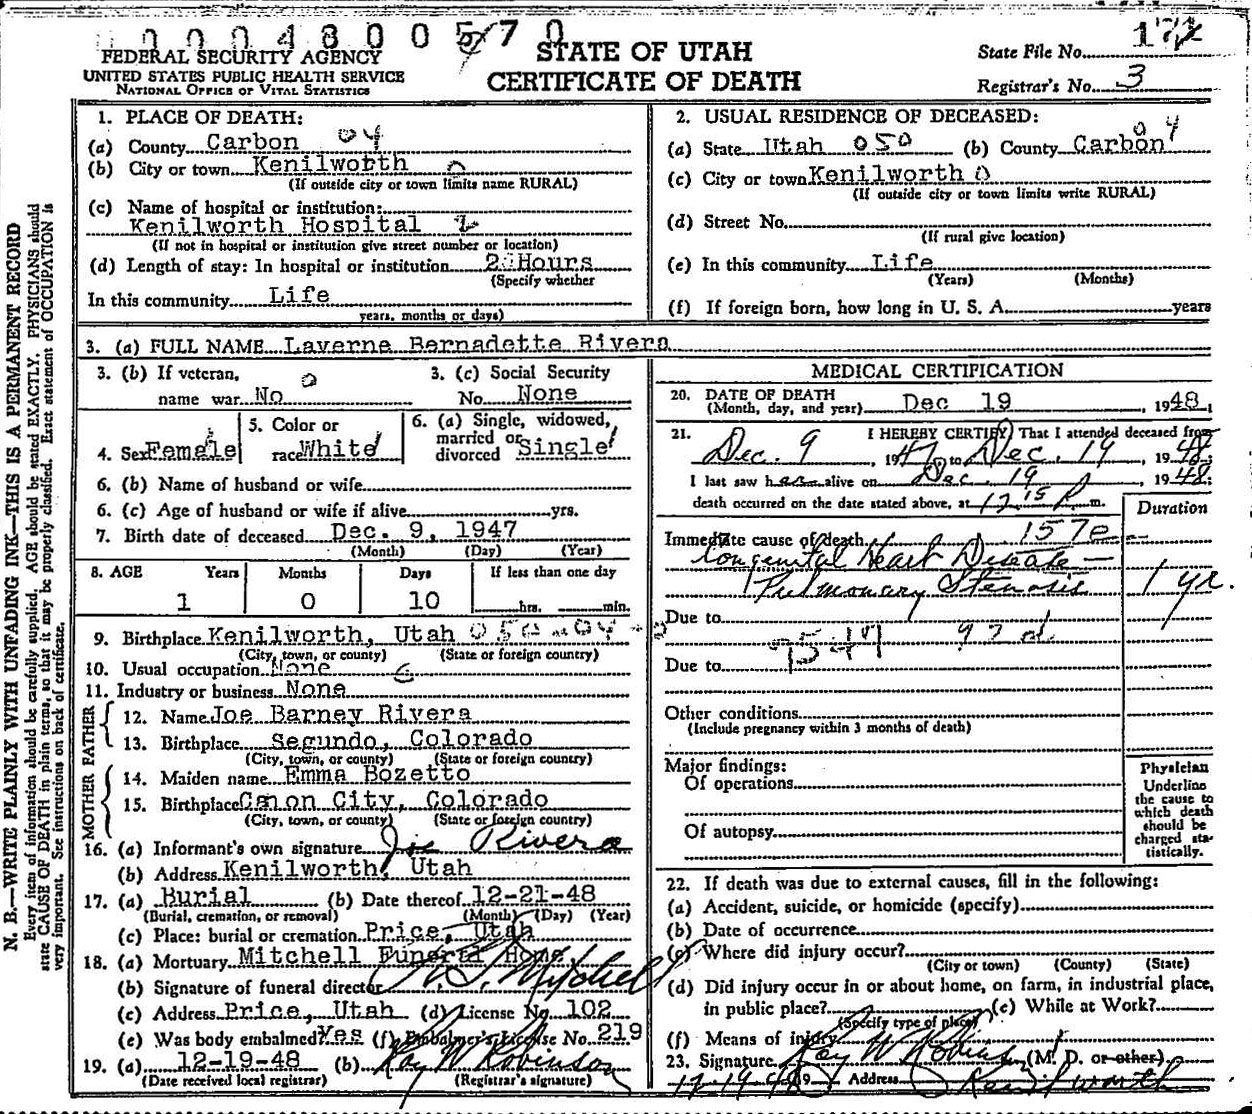 0 0 0 4 8 0 0 5 7 0
FEDERAL SECURITY AGENCY
UNITED STATES PUBLIC HEALTH SERVICE
NATIONAL OFFICE OF VITAL STATISTICS
STATE OF UTAH
CERTIFICATE OF DEATH
State File No.
Registrar's No. 3
N. B.—WRITE PLAINLY WITH UNFADING INK—THIS IS A PERMANENT RECORD
Every item of information should be carefully supplied. AGE should be stated EXACTLY. PHYSICIANS should
state CAUSE OF DEATH in plain terms, so that it may be properly classified. Exact statement of OCCUPATION is
very important. See instructions on back of certificate.
1. PLACE OF DEATH:
(a) County Carbon 04
(b) City or town Kenilworth 0
(If outside city or town limits name RURAL)
(c) Name of hospital or institution:
Kenilworth Hospital 2
(If not in hospital or institution give street number or location)
(d) Length of stay: In hospital or institution 2 Hours
(Specify whether
In this community Life
years, months or days)
2. USUAL RESIDENCE OF DECEASED:
(a) State Utah 050 (b) County Carbon 04
(c) City or town Kenilworth 0
(If outside city or town limits write RURAL)
(d) Street No.
(If rural give location)
(e) In this community Life
(Years) (Months)
(f) If foreign born, how long in U. S. A. years
3. (a) FULL NAME Laverne Bernadette Rivera
3. (b) If veteran, name war No 0
3. (c) Social Security No. None
4. Sex Female
5. Color or race White
6. (a) Single, widowed, married or divorced Single
6. (b) Name of husband or wife
6. (c) Age of husband or wife if alive yrs.
7. Birth date of deceased Dec. 9, 1947
(Month) (Day) (Year)
8. AGE Years Months Days If less than one day
1 0 10 hrs. min.
9. Birthplace Kenilworth, Utah
(City, town, or county) (State or foreign country)
10. Usual occupation None
11. Industry or business None
FATHER
12. Name Joe Barney Rivera
13. Birthplace Segundo, Colorado
(City, town, or county) (State or foreign country)
MOTHER
14. Maiden name Emma Bozetto
15. Birthplace Canon City, Colorado
(City, town, or county) (State or foreign country)
16. (a) Informant's own signature Joe Rivera
(b) Address Kenilworth, Utah
17. (a) Burial (b) Date thereof 12-21-48
(Burial, cremation, or removal) (Month) (Day) (Year)
(c) Place: burial or cremation Price, Utah
18. (a) Mortuary Mitchell Funeral Home
(b) Signature of funeral director Mitchell
(c) Address Price, Utah (d) License No. 102
(e) Was body embalmed? Yes (f) Embalmer's License No. 219
19. (a) 12-19-48 (b) Ray W Robinson
(Date received local registrar) (Registrar's signature)
MEDICAL CERTIFICATION
20. DATE OF DEATH
(Month, day, and year) Dec 19, 1948
21. I HEREBY CERTIFY, That I attended deceased from
Dec. 9, 1947 to Dec. 19, 1948;
I last saw her alive on Dec. 19, 1948;
death occurred on the date stated above, at 12 15 P m.
Duration
Immediate cause of death 157e
Congenital Heart Disease —
Pulmonary Stenosis 1 yr.
Due to
Due to
Other conditions
(Include pregnancy within 3 months of death)
Major findings:
Of operations
Of autopsy
Physician
Underline
the cause to
which death
should be
charged sta-
tistically.
22. If death was due to external causes, fill in the following:
(a) Accident, suicide, or homicide (specify)
(b) Date of occurrence
(c) Where did injury occur?
(City or town) (County) (State)
(d) Did injury occur in or about home, on farm, in industrial place,
in public place? (e) While at Work?
(Specify type of place)
(f) Means of injury
23. Signature Ray W Robinson (M. D. or other)
12-19-48 Address Kenilworth